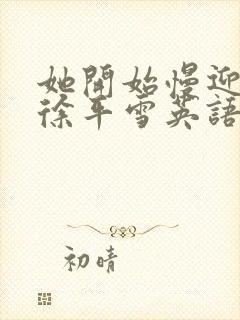 她開始慢迎
徐平雪英語
初晴